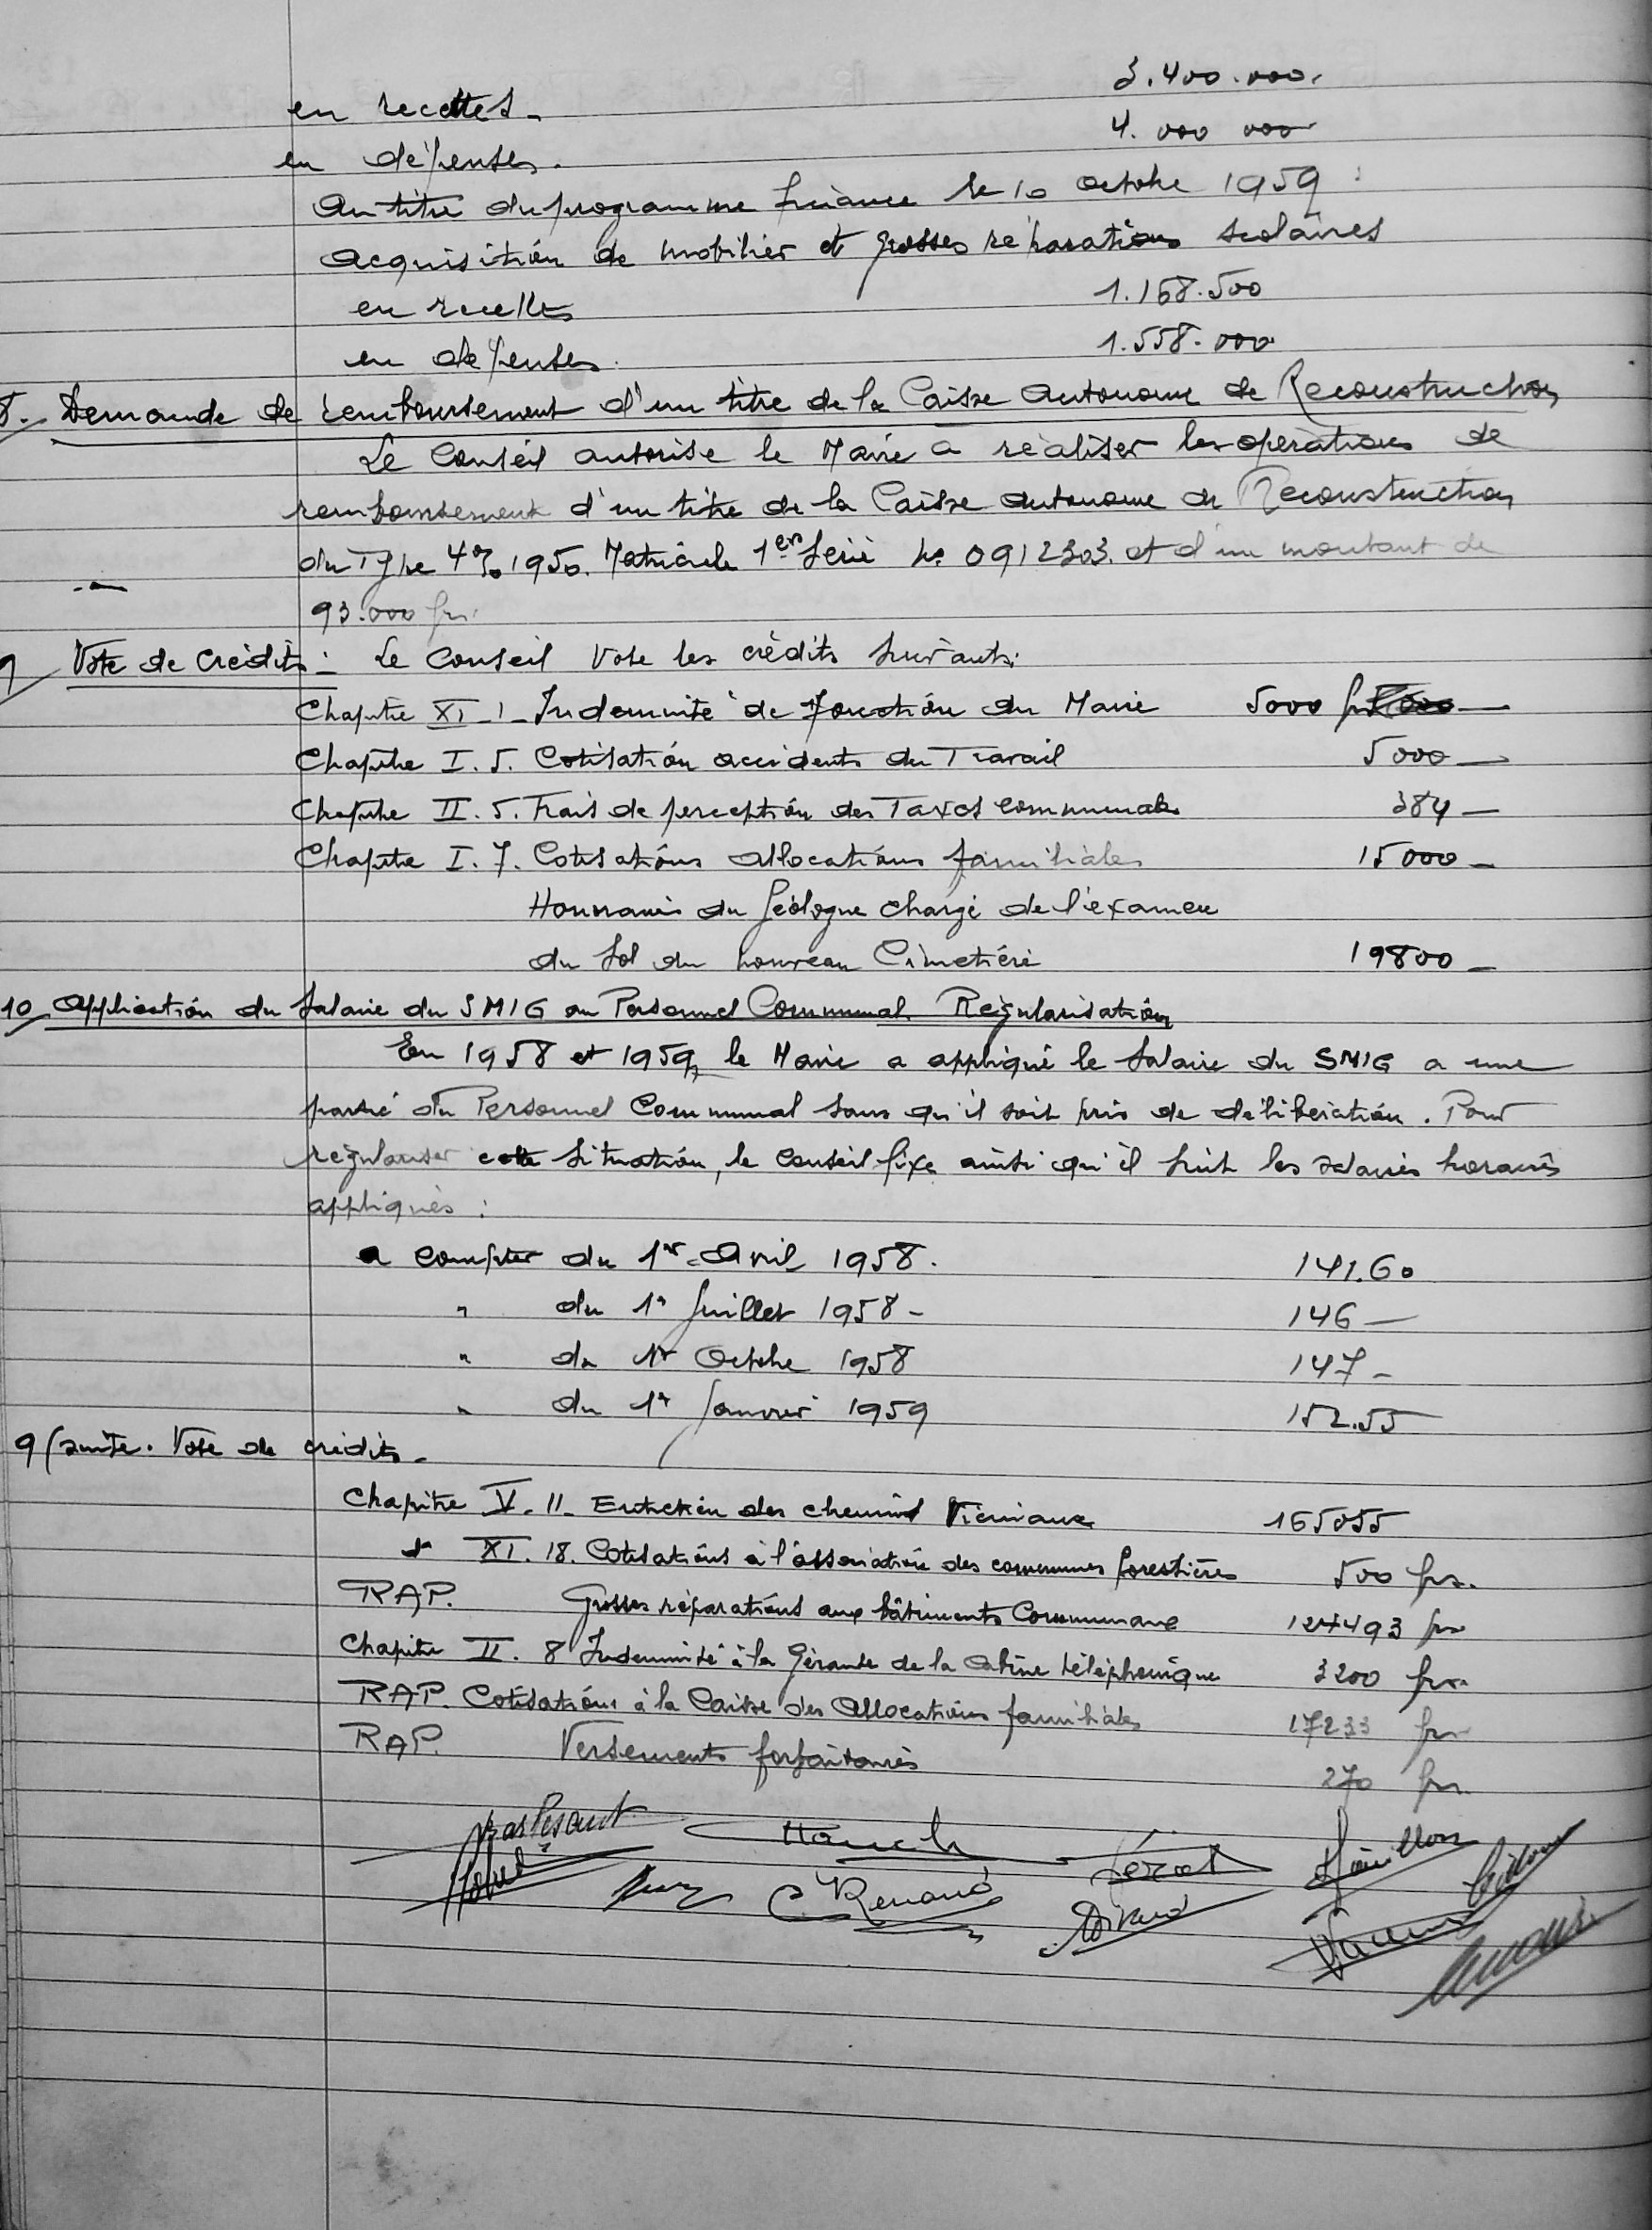 en recettes - 3.400.000.
en dépenses. 4.000 000
Au titre du programme financé le 10 octobre 1959 :
Acquisition de mobilier et grosses réparations scolaires
en recettes 1.168.500
en dépenses. 1.558.000
8. Demande de remboursement d'un titre de la Caisse Autonome de Reconstruction
Le Conseil autorise le Maire à réaliser les opérations de
remboursement d'un titre de la Caisse Autonome de Reconstruction
du Type 4% 1950. Matricule 1ère série No 0912303. et d'un montant de
93.000 frs.
9 Vote de Crédits : Le Conseil Vote les crédits suivants:
Chapitre XI - 1 - Indemnité de fonction du Maire 5000 frs
Chapitre I. 5. Cotisation accidents du Travail 5000 -
Chapitre II. 5. Frais de perception des Taxes communales 384 -
Chapitre I. 7. Cotisations Allocations familiales 15000 -
Honoraires du Géologue chargé de l'examen
du Sol du nouveau Cimetière 19800 -
10 Application du Salaire du SMIG au Personnel Communal. Régularisation
En 1958 et 1959, le Maire a appliqué le Salaire du SMIG a une
partie du Personnel Communal sans qu'il soit pris de délibération. Pour
régulariser cette situation, le Conseil fixe ainsi qu'il suit les salaires horaires
appliqués :
a compter du 1er Avril 1958. 141.60
" du 1er Juillet 1958 - 146 -
" du 1er Octobre 1958 147 -
" du 1er Janvier 1959 152.55
9 (suite. Vote de crédits -
Chapitre V. 11 - Entretien des chemins Vicinaux 165055
XI. 18. Cotisations à l'association des communes forestières 500 frs.
RAP. Grosses réparations aux bâtiments Communaux 124493 frs
Chapitre II. 8 Indemnité à la Gérante de la cabine téléphonique 3200 frs.
RAP. Cotisations à la Caisse des Allocations familiales 17233 frs
RAP. Versements forfaitaires 270 frs
C Renaud